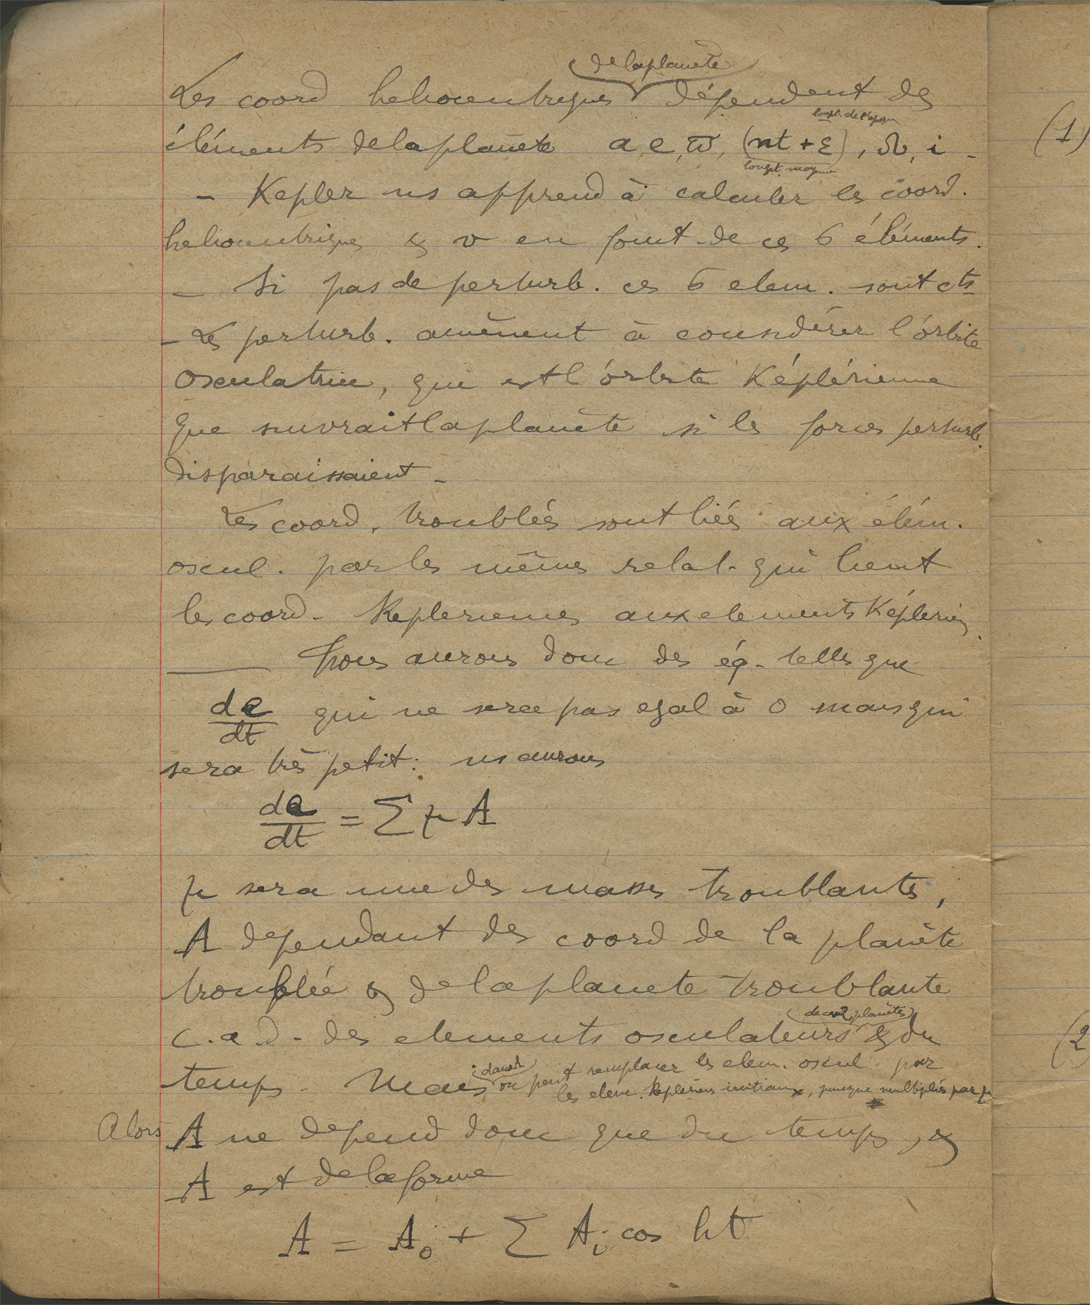 de la planète
Les coord heliocentriques dépendent des
longit. de l'époque
éléments de la planète a, e, ϖ, (nt + ε), Ω, i -
longit. moy
- Kepler ns apprend à calculer les coord.
heliocentriques & v en fonct. de ces 6 éléments.
- Si pas de perturb. ces 6 elem. sont cts
- Les perturb. amènent à considérer l'orbite
osculatrice, qui est l'orbite Képlérienne
que suivrait la planète si les forces perturb.
disparaissaient -
Les coord. troublées sont liées aux élém.
oscul. par les mêmes relat. qui lient
les coord. Kepleriennes aux elements Képleriens.
Nous aurons donc des éq. telles que
de/dt qui ne sera pas egal à 0 mais qui
sera très petit : ns aurons
de/dt = Σ μ A
μ sera une des masses troublantes,
A dependant des coord de la planète
troublée & de la planete troublante
(de ces 2 planètes)
c.a.d. des elements osculateurs & du
temps. Mais (dans A) on peut remplacer les elem. oscul. par
les elem. Kepleriens initiaux, puisque multipliés par μ
Alors A ne depend donc que du temps, &
A est de la forme
A = A₀ + Σ Aᵢ cos ht
(1)
(2